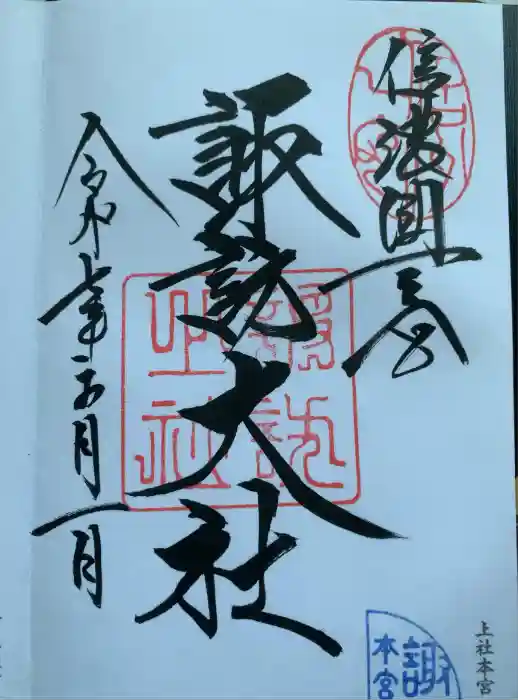 信濃國一之宮
諏訪大社
令和七年五月一日
諏訪
上社
上社本宮
諏
本宮